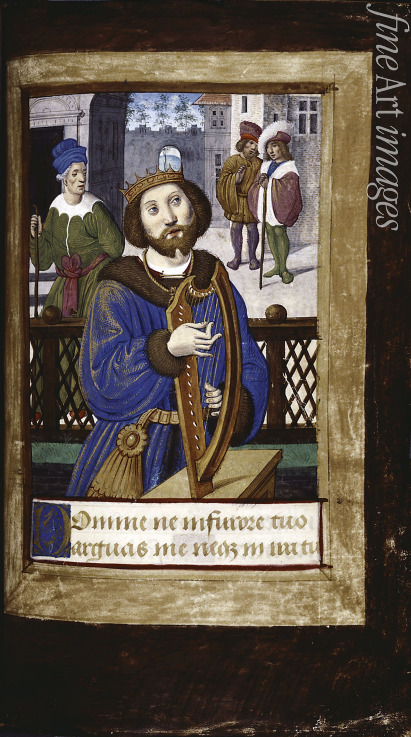 fine Art images
Domine ne in furore tuo
arguas me neqz in ira tu